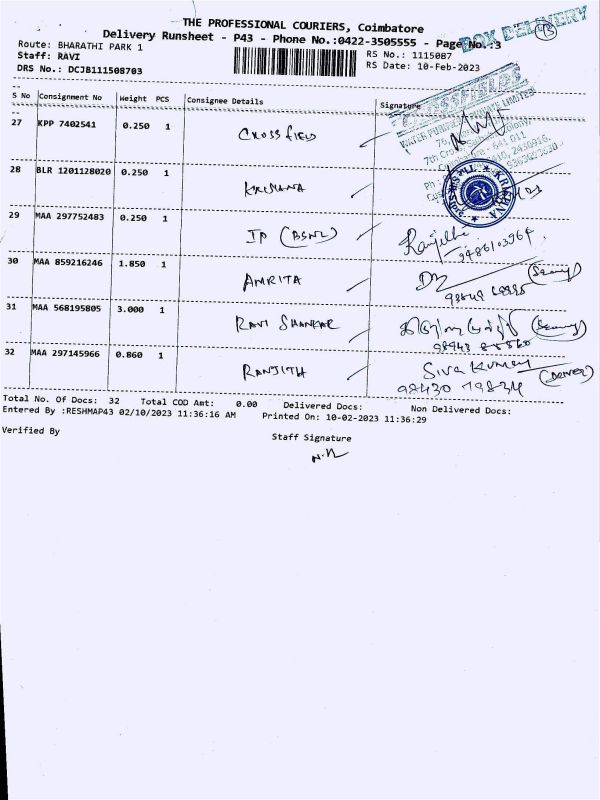 THE PROFESSIONAL COURIERS, Coimbatore
BOX DELIVERY
Delivery Runsheet - P43 - Phone No.:0422-3505555 - Page No.:3
Route: BHARATHI PARK 1
RS No.: 1115087
Staff: RAVI
RS Date: 10-Feb-2023
DRS No.: DCJB111508703
S No Consignment No Weight PCS Consignee Details Signature
27 KPP 7402541 0.250 1 CROSSFIELD
WATER PURI LIMITED
641 011
28 BLR 1201128020 0.250 1 KRISHNA
29 MAA 297752483 0.250 1 IP (BSNL) Ranjith
9486103964
30 MAA 859216246 1.850 1 AMRITA
31 MAA 568195805 3.000 1 RAVI SHANKAR
32 MAA 297145966 0.860 1 RANJITH Siva Kumar
98430 79834 (Driver)
Total No. Of Docs: 32 Total COD Amt: 0.00 Delivered Docs: Non Delivered Docs:
Entered By :RESHMAP43 02/10/2023 11:36:16 AM Printed On: 10-02-2023 11:36:29
Verified By
Staff Signature